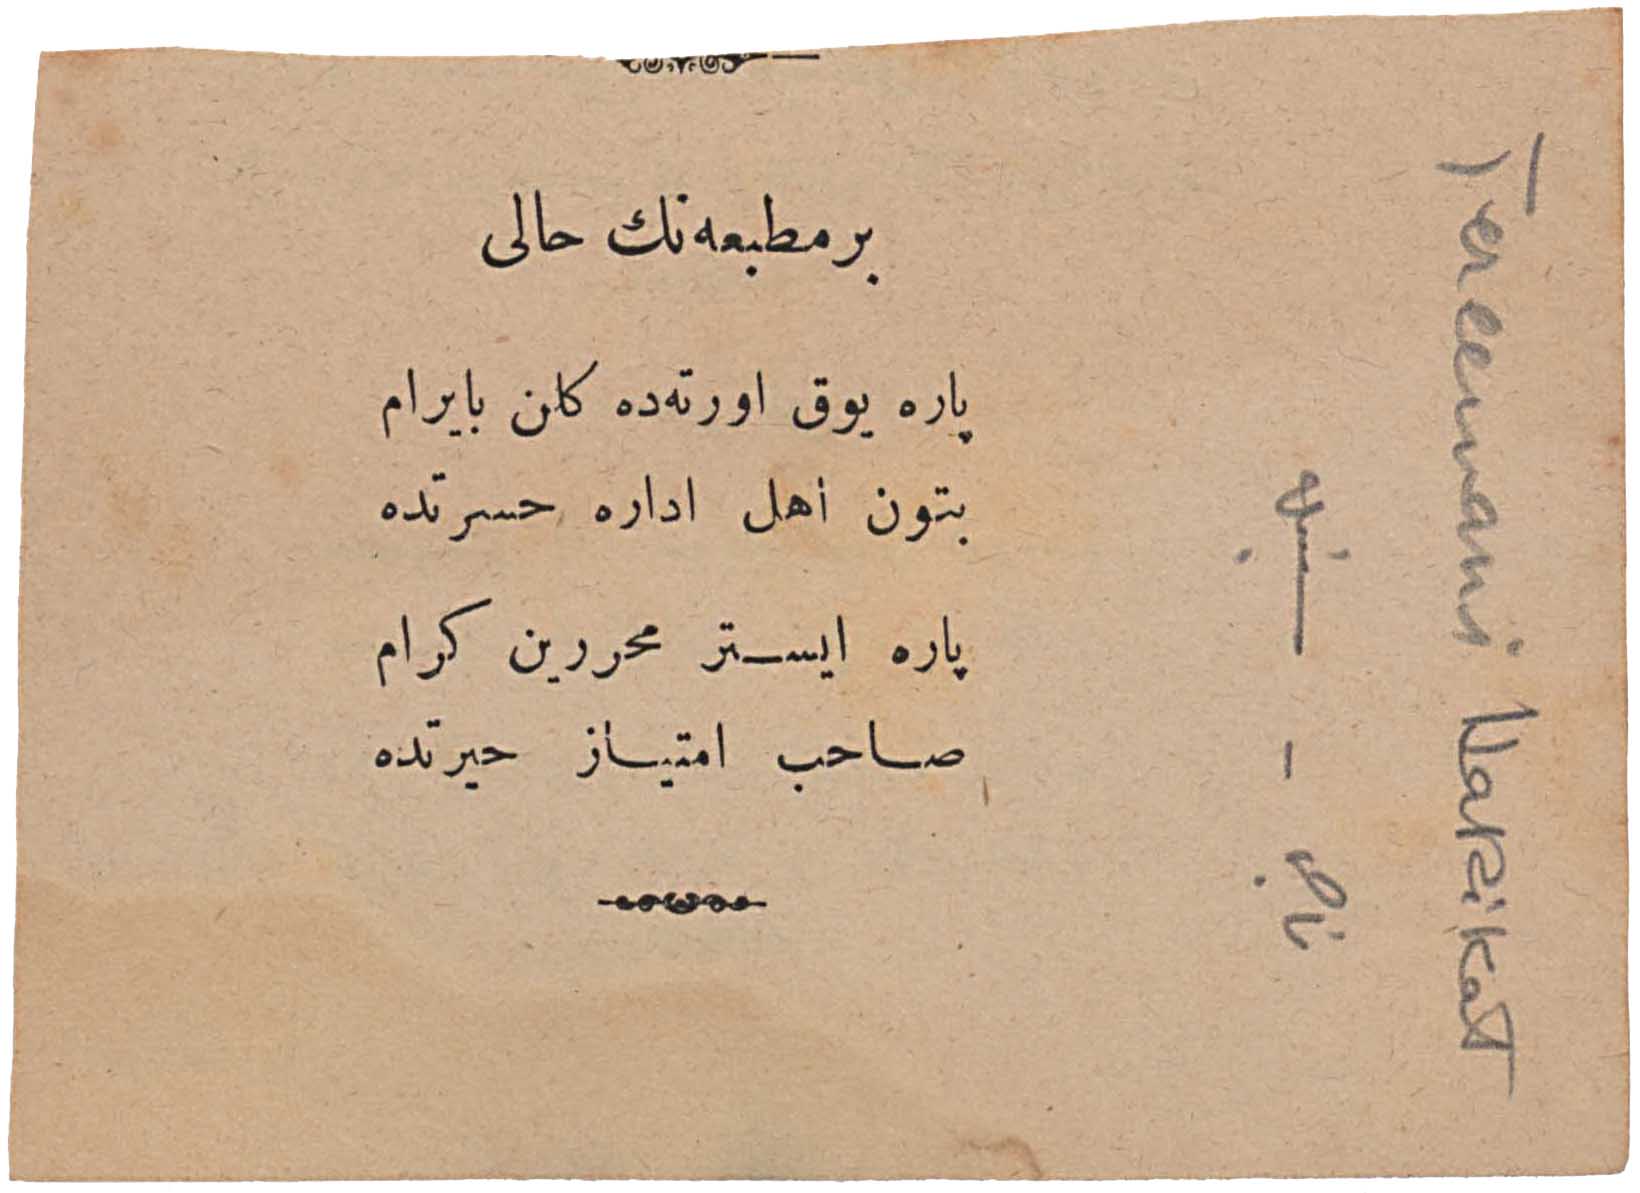 بر مطبعه‌نك حالی
پاره یوق اورته‌ده كلن بایرام
بتون اهل اداره حسرتده
پاره ایستر محررین كرام
صاحب امتیاز حیرتده
Tercemani Hakikat